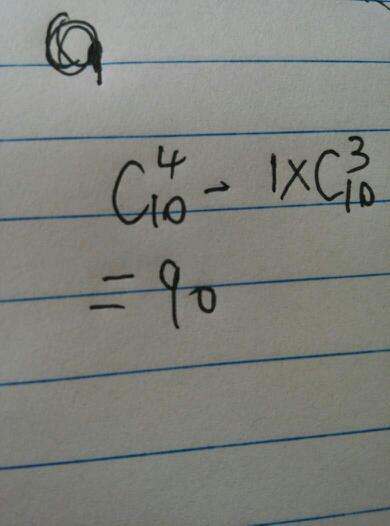 C₁₀⁴ - 1×C₁₀³
= 90